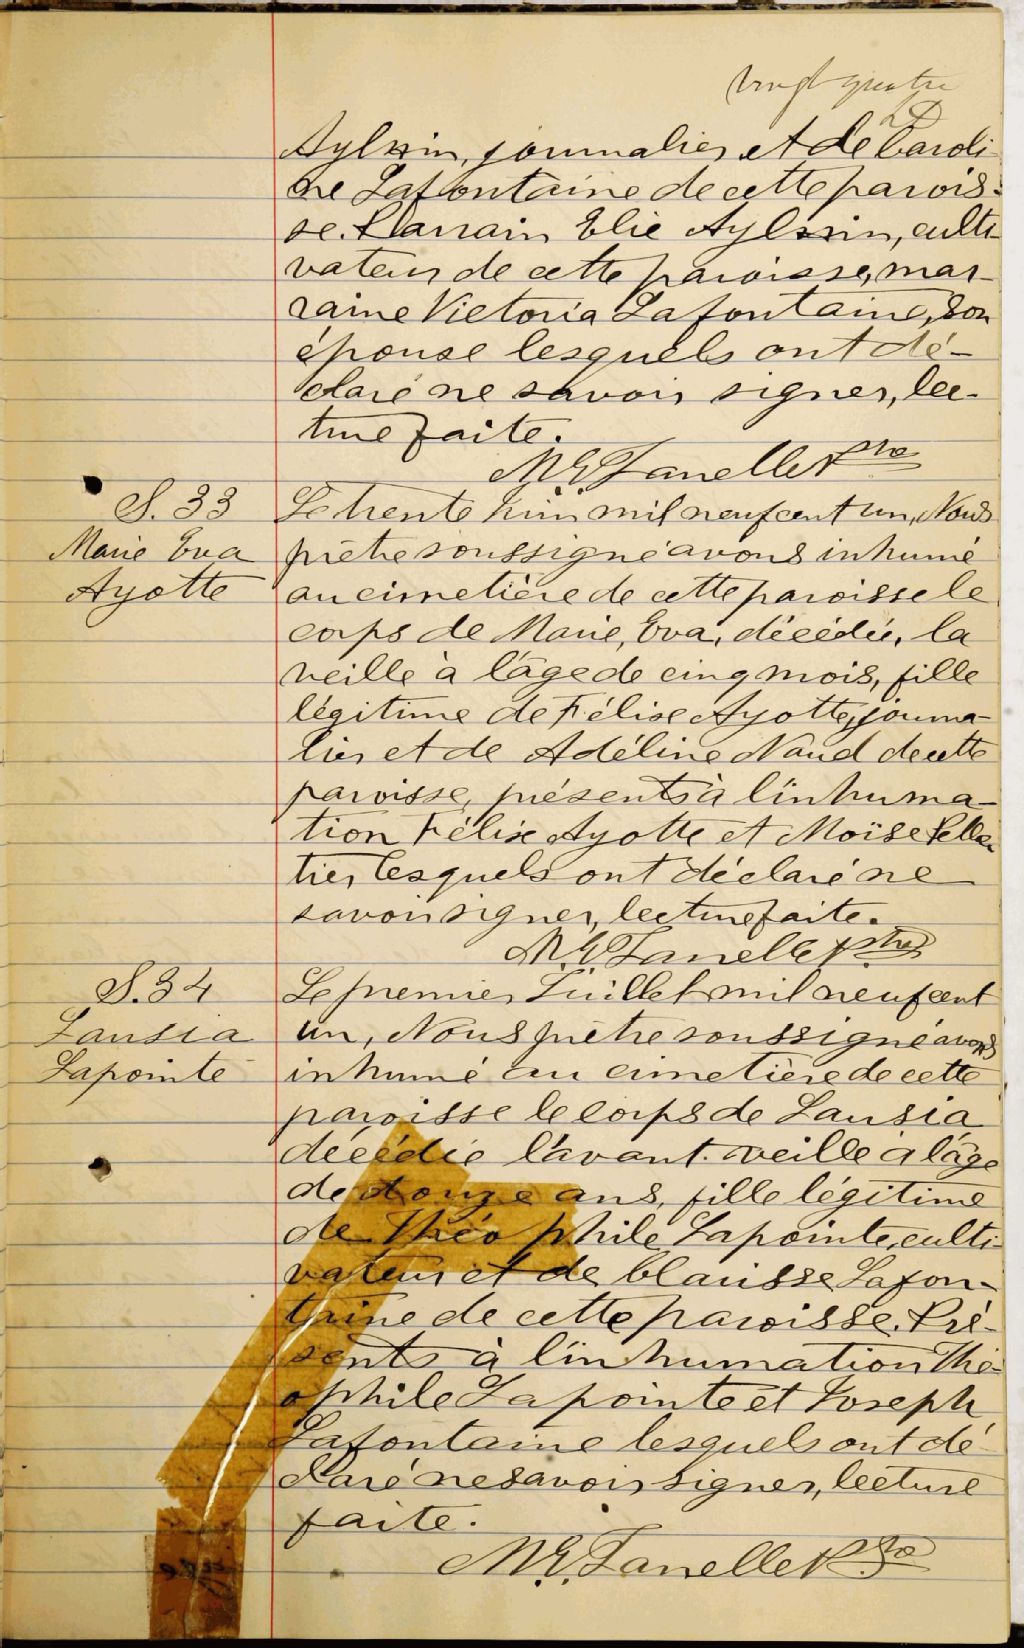 vingt quatre
Aylwin, journalier et de Caroli-
ne Lafontaine de cette parois-
se. Parrain Elie Aylwin, culti-
vateur de cette paroisse, mar-
raine Victoria Lafontaine, son
épouse lesquels ont dé-
claré ne savoir signer, lec-
ture faite.
M. E. Janelle Ptre
S. 33
Marie Eva
Ayotte
Le trente Juin mil neuf cent un, Nous
prêtre soussigné avons inhumé
au cimetière de cette paroisse le
corps de Marie, Eva, décédée, la
veille à l'âge de cinq mois, fille
légitime de Félise Ayotte, journa-
lier et de Adéline Naud de cette
paroisse, présents à l'inhuma-
tion Félix Ayotte et Moïse Pelle
tier lesquels ont déclaré ne
savoir signer, lecture faite.
M. E. Janelle Ptre
S. 34
Lausia
Lapointe
Le premier Juillet mil neuf cent
un, Nous prêtre soussigné avons
inhumé au cimetière de cette
paroisse le corps de Lausia
décédée l'avant-veille à l'âge
de douze ans, fille légitime
de Théophile Lapointe, culti-
vateur et de Clarisse Lafon-
taine de cette paroisse. Pré-
sents à l'inhumation Thé-
ophile Lapointe et Joseph
Lafontaine lesquels ont dé-
claré ne savoir signer, lecture
faite.
M. E. Janelle Ptre